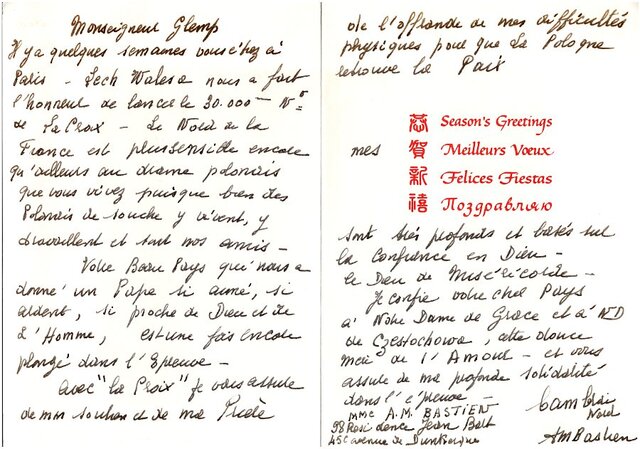 Monseigneur Glemp
Il y a quelques semaines vous étiez à
Paris - Lech Walesa nous a fait
l'honneur de lancer le 30.000ème N°
de La Croix - Le Nord de la
France est plus sensible encore
qu'ailleurs au drame polonais
que vous vivez puisque bien des
Polonais de souche y vivent, y
travaillent et sont nos amis -
Votre Beau Pays qui nous a
donné un Pape si aimé, si
ardent, si proche de Dieu et de
L'Homme, est une fois encore
plongé dans l'Epreuve -
avec "la Croix" je vous assure
de mon soutien et de ma Prière
de l'offrande de mes difficultés
physiques pour que la Pologne
retrouve la Paix
恭賀新禧
Season's Greetings
mes Meilleurs Vœux
Felices Fiestas
Поздравляю
sont très profonds et basés sur
la Confiance en Dieu -
le Dieu de Miséricorde -
Je confie votre cher Pays
à Notre Dame de Grace et à ND
de Czestochowa, cette douce
Mère de l'Amour - et vous
assure de ma profonde solidarité
dans l'épreuve -
Mme A.M. BASTIEN
98 Résidence Jean Bart
45c avenue de Dunkerque
Cambrai
Nord
AMBastien